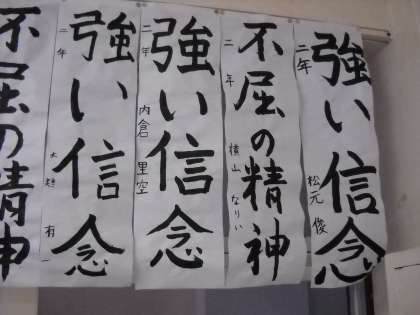 強い信念
二年
松元 俊
不屈の精神
二年
横山 なりい
強い信念
二年
内倉 里空
強い信念
二年
有一
不屈の精神